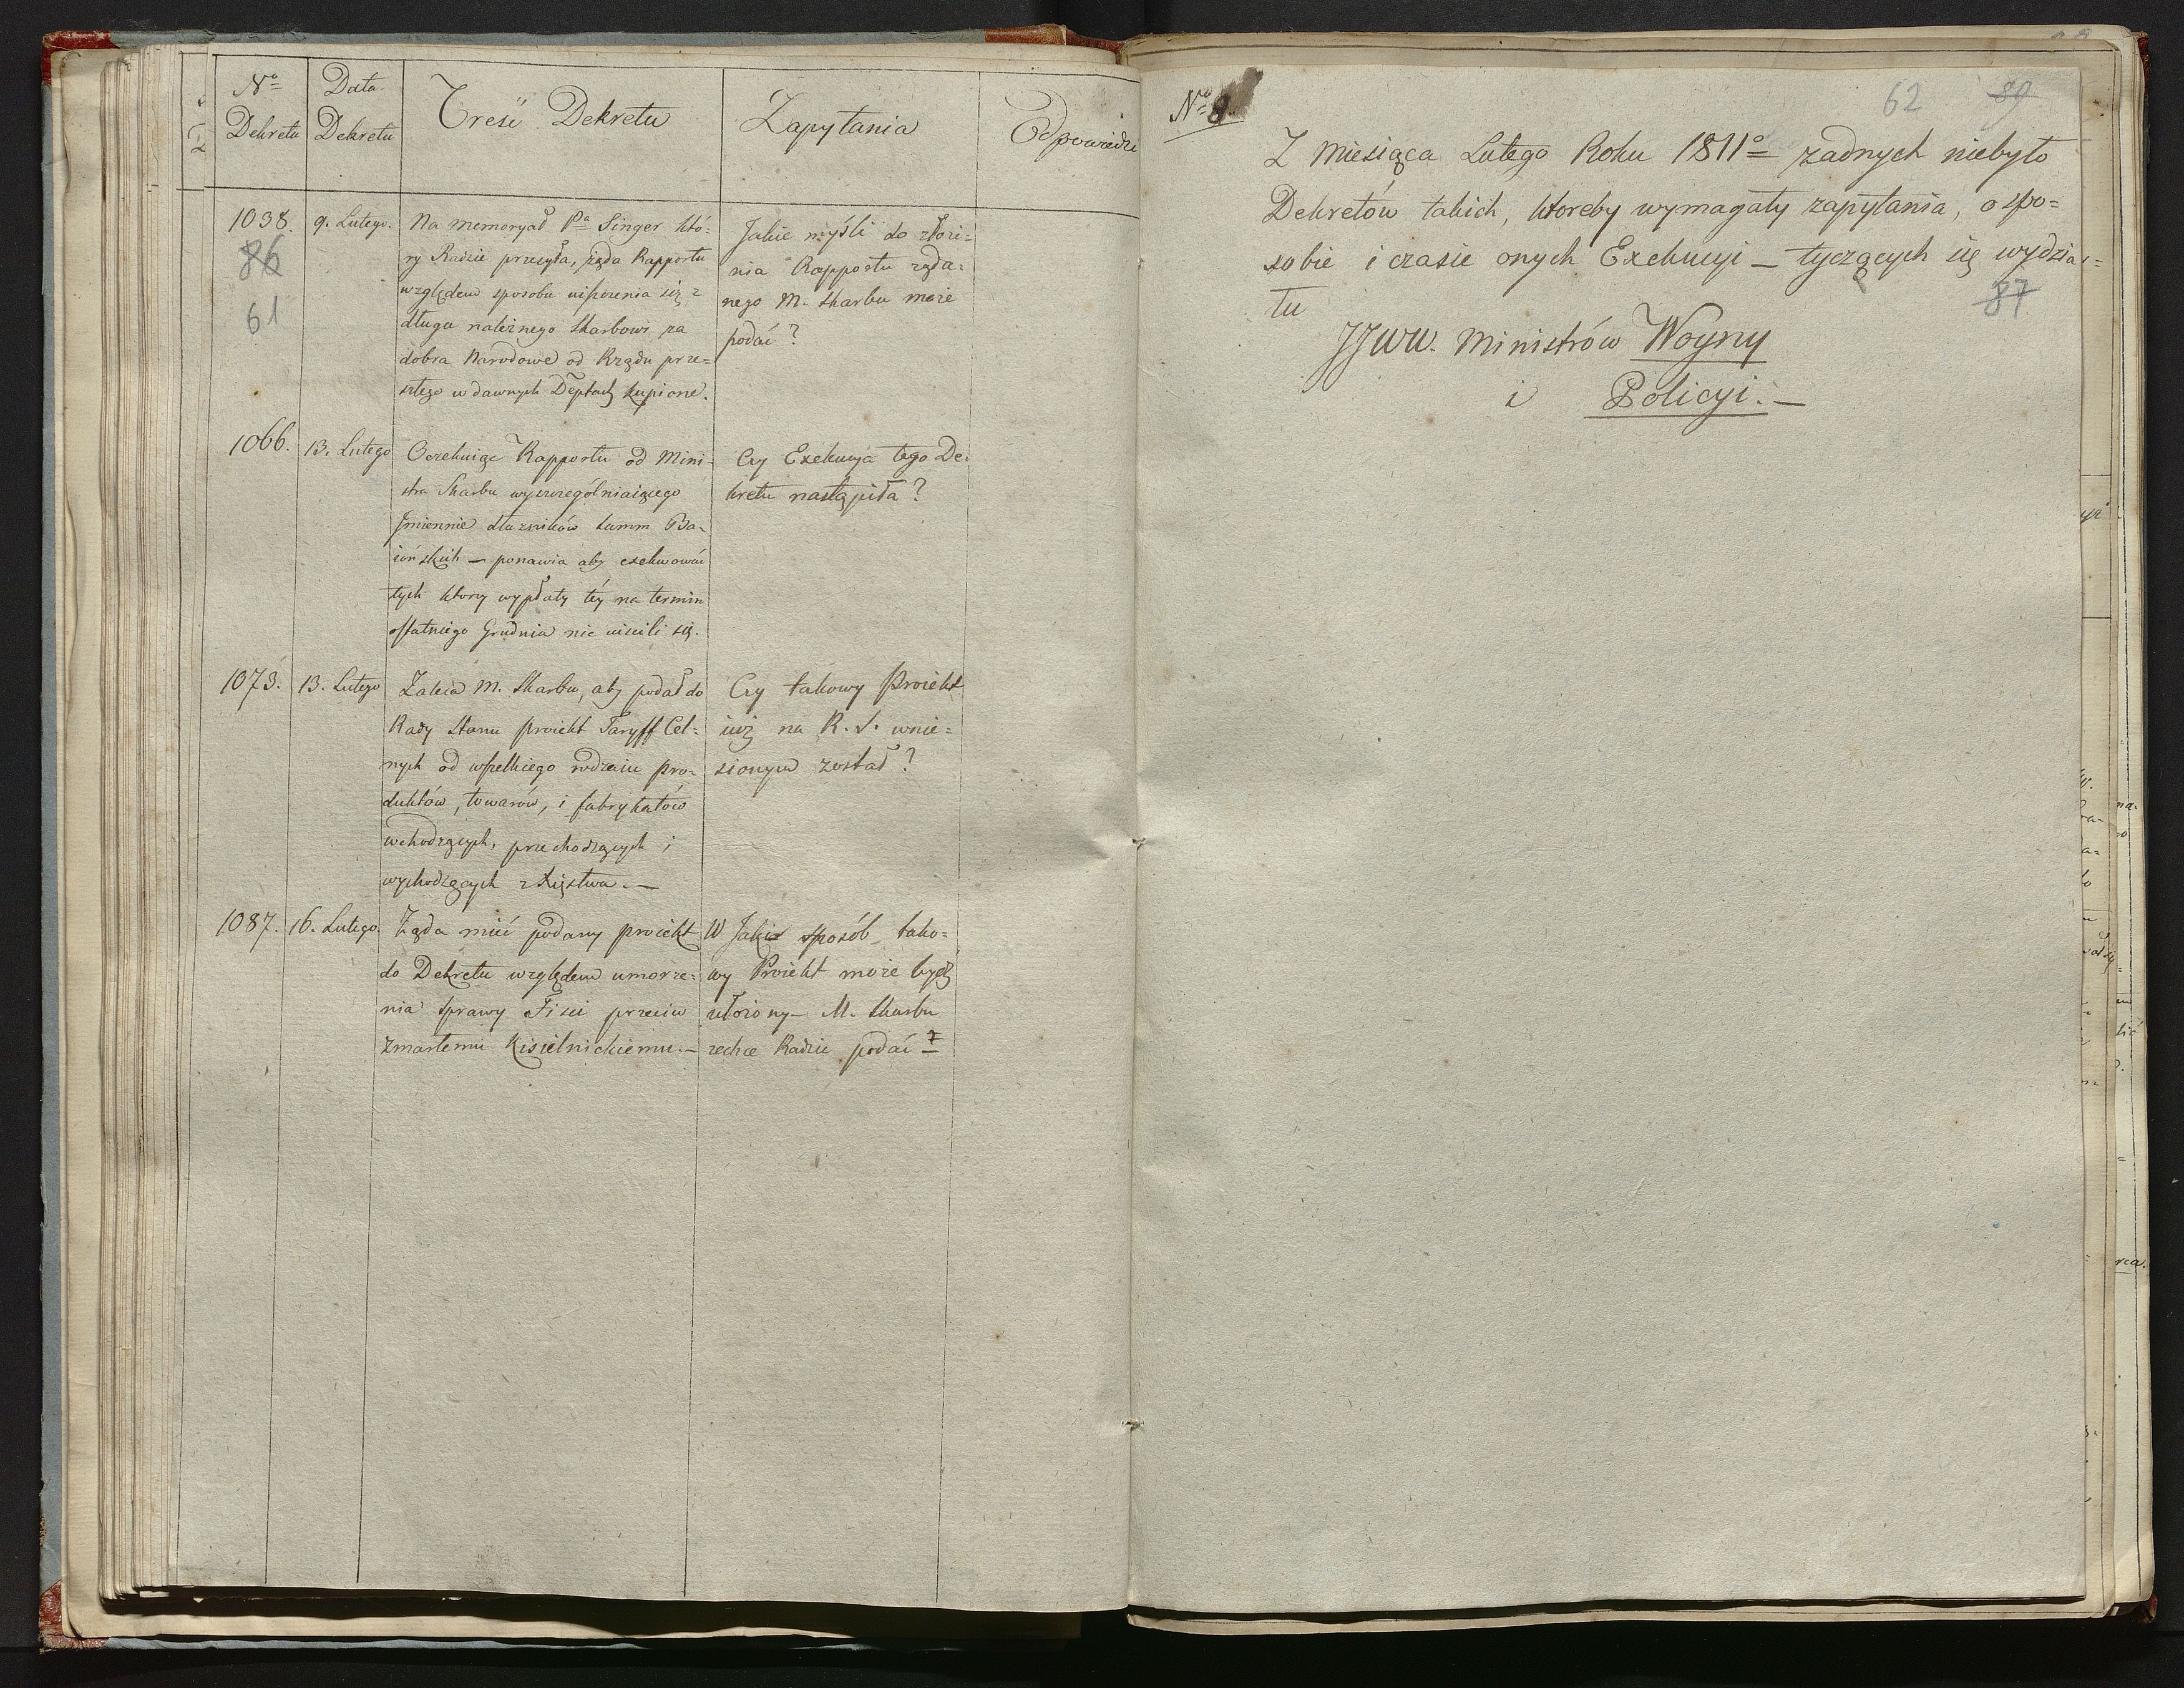 No Dekretu
Data Dekretu
Treść Dekretu
Zapytania
Odpowiedzi
1038.
86
61
9. Lutego.
Na memoryał Pa Singer któ=
ry Radzie przesyła, żąda Rapportu
względem sposobu uiszczenia się z
długu należnego Skarbowi za
dobra Narodowe od Rządu prze=
szłego w dawnych Deptach kupione.
Jakie myśli do złoże=
nia Rapportu żąda=
nego M. Skarbu może
podać?
1066.
13. Lutego
Oczekuiąc Rapportu od Mini=
stra Skarbu wyszczególniaiącego
Jmiennie dłużników Summ Ba=
iońskich — ponawia aby exekwować
tych którzy wypłaty téy na termin
ostatniego Grudnia nie uiscili się.
Czy Exekucya tego De=
kretu nastąpiła?
1073.
13. Lutego
Zaleca M. Skarbu, aby podał do
Rady Stanu proiekt Taryff Cel=
nych od wszelkiego rodzaiu pro=
duktów, towarów, i fabrykatów
wchodzących, przechodzących i
wychodzących z Xięstwa.—
Czy takowy Proiekt
iuż na R. S. wnie=
sionym został?
1087.
16. Lutego.
Żąda mieć podany proiekt
do Dekretu względem umorze=
nia Sprawy Fisci przeciw
zmarłemu Kisielnickiemu.—
W Jaki sposób tako=
wy Proiekt może bydź
ułożony — M. Skarbu
zechce Radzie podać
No 8.
62
89
Z Miesiąca Lutego Roku 1811o żadnych niebyło
Dekretów takich, któreby wymagały zapytania, o spo=
sobie i czasie onych Exekucyi — tyczących się wydzia=
łu
87
JJWW. Ministrów Woyny
i Policyi.—